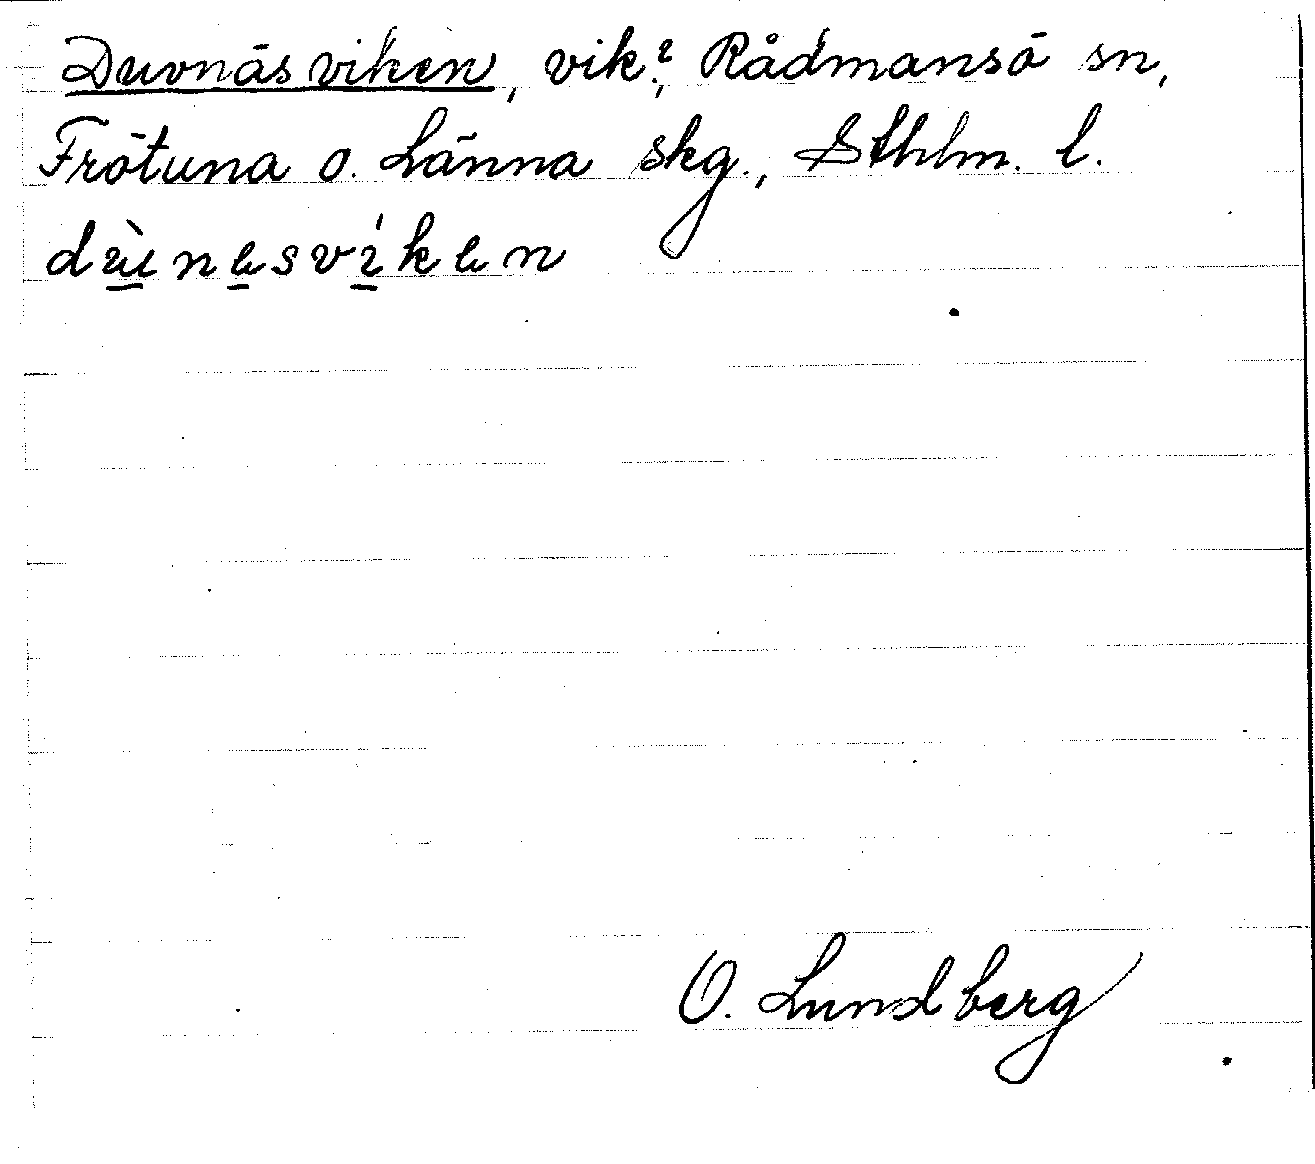 Duvnäsviken, vik?, Rådmansö sn,
Frötuna o. Länna skg., Sthlm. l.
dù̱ne̱sví̱ken
O. Lundberg